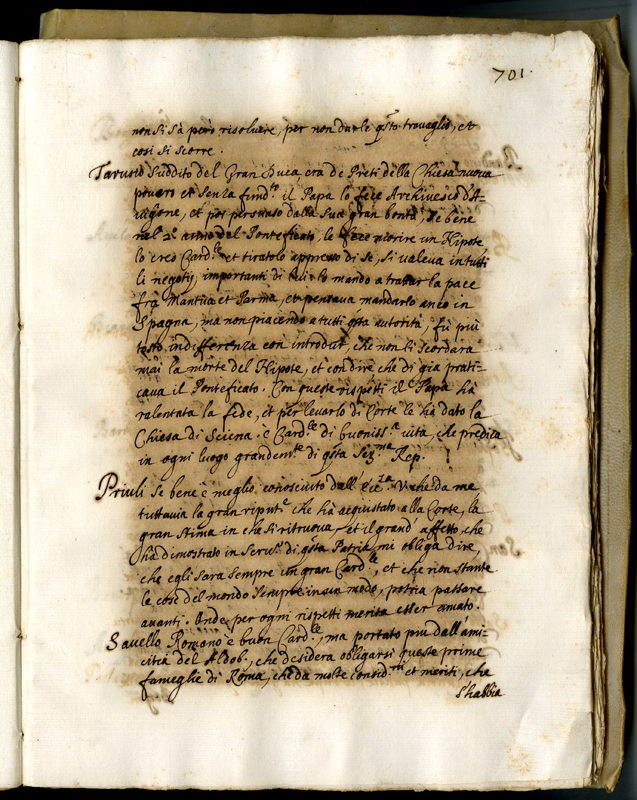 701.
non si sà però risoluere, per non darle qsto trauaglio, et
così si scorre.
Tarusio suddito del Gran Duca, era de Preti della Chiesa nuoua
pouero et senza fund.to il Papa lo fece Archiuescouo d'A=
uignone, et poi persuaso dalla sua gran bontà, se bene
nel 2.o anno del Ponteficato, le fece morire un Nipote
lo creò Card.le et tiratolo appresso di se, si ualeua in tutti
li negotij importanti di lui lo mandò a trattar la pace
frà Mantua et Parma, et pensaua mandarlo anco in
Spagna, ma non piacendo a tutti qsta autorità, fù più
tosto indifferenza con introdur, che non si scordarà
mai la morte del Nipote, et con dire che di già prati=
caua il Ponteficato. Con queste rispetti il Papa hà
ralentata la fede, et per leuarlo di Corte le hà dato la
Chiesa di Sciena. è Card.le di buoniss.a uita, che predica
in ogni luogo grandem.te di qsta Ser.ma Rep.
Priuli se bene è meglio conosciuto dall' che da me
tuttauia la gran riput.e che hà acquistato alla Corte, la
gran stima in che si ritruoua, et il grand' affetto, che
hà dimostrato in seru.o di qsta Patria, mi obliga dire,
che egli sarà sempre un gran Card.le, et che non stante
le cose del mondo sempre in un modo, potria passare
auanti. Onde per ogni rispetti merita esser amato.
Sauello Romano è buon Card.le, ma portato più dall' ami=
citia del Aldob., che desidera obligarsi queste prime
fameglie di Roma, che da molte consid.ni et meriti, che
s'habbia